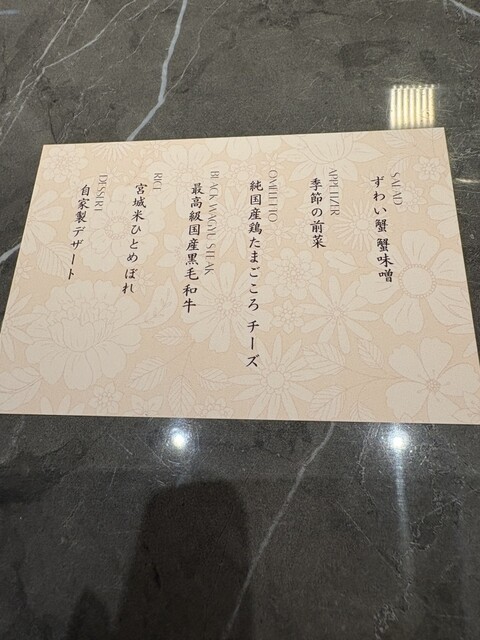 SALAD
ずわい蟹 蟹味噌
APPETIZER
季節の前菜
OMELETTO
純国産鶏たまごころ チーズ
BLACK WAGYU STEAK
最高級国産黒毛和牛
RICE
宮城米ひとめぼれ
DESSERT
自家製デザート